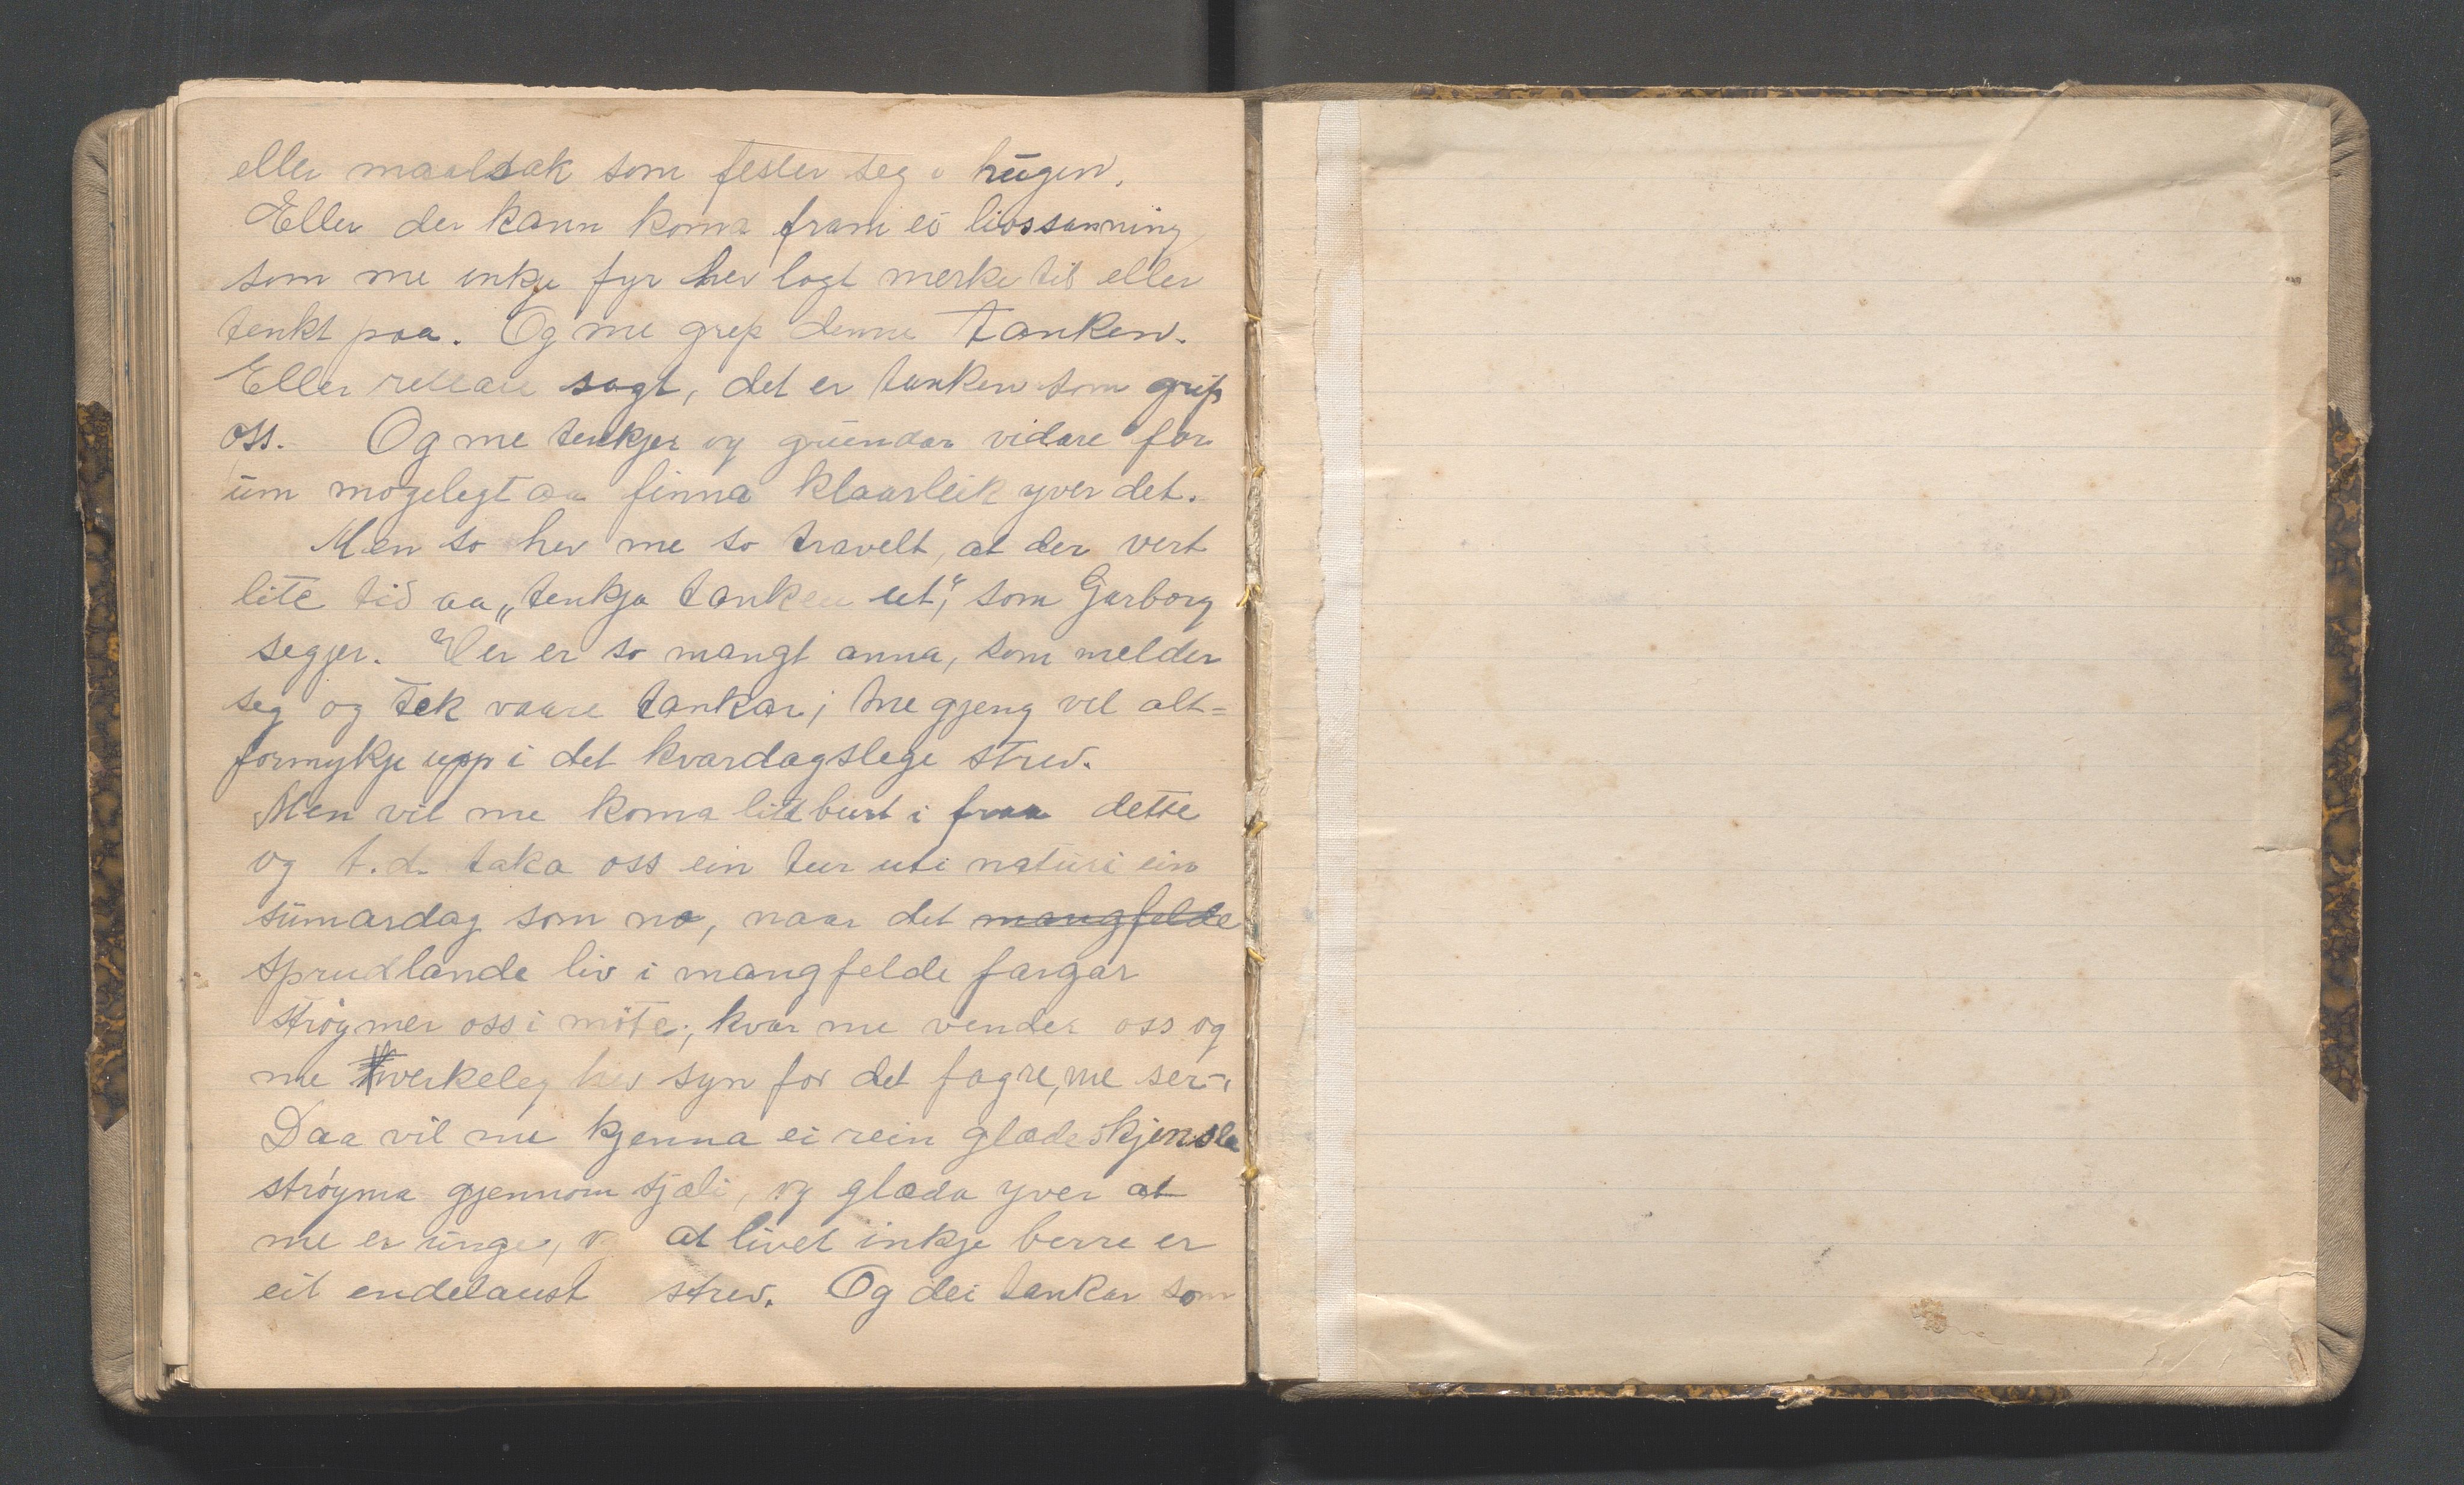 eller maalsak som fester seg i hugen.
Eller der kann koma fram ei livssanning
som me inkje fyr hev lagt merke til eller
tenkt paa. Og me grip denne tanken.
Eller rettare sagt, det er tanken som grip
oss. Og me tenkjer og grundar vidare for
um mogelegt aa finna klaarleik yver det.
Men so hev me so travelt, at der vert
lite tid aa „tenkja tanken ut“, som Garborg
segjer. Der er so mangt anna, som melder
seg og tek vaare tankar; me gjeng vel alt=
formykje upp i det kvardagslege strev.
Men vil me koma litt burt i fraa dette
og t.d. taka oss ein tur ut i naturi ein
sumardag som no, naar det mangfelde
sprudlande liv i mangfelde fargar
strøymer oss i møte; kvar me vender oss og
me verkeleg hev syn for det fagre, me ser -,
Daa vil me kjenna ei rein gladeskjensla
strøyma gjennom sjæli, og glæda yver at
me er unge, og at livet inkje berre er
eit endelaust strev. Og dei tankar som